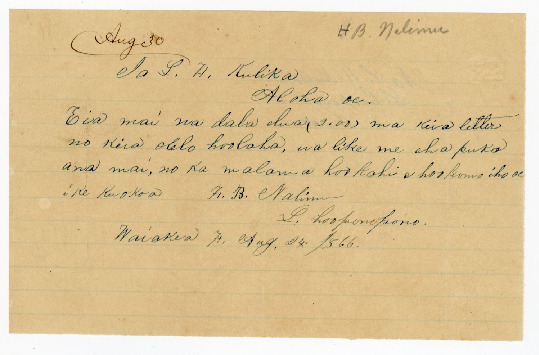 Aug 30
H B. Nalimu
Ia L. H. Kulika
Aloha oe.
Eia mai na dala elua (2.00) ma keia letter
no keia olelo hoolaha, ua like me eha puka
ana mai, no ka malama hookahi e hookomo iho oe
i ke Kuokoa H. B. Nalimu
L. hooponopono.
Waiakea H. Aug. 24 /866.